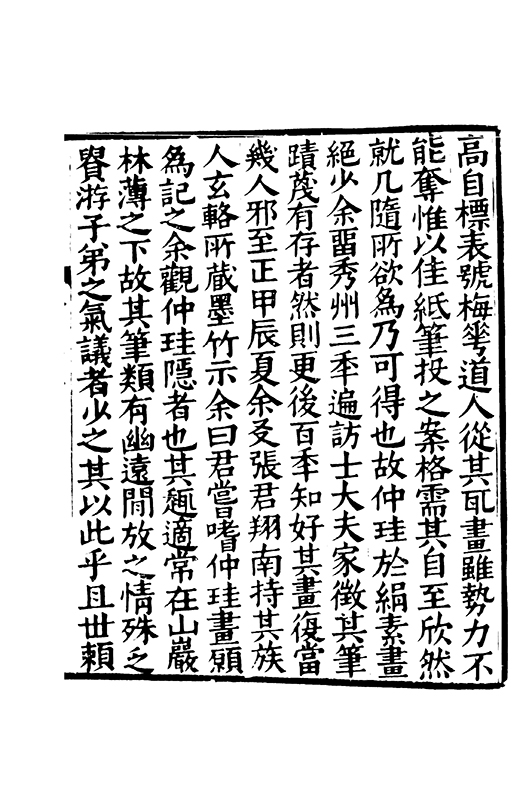 高自標表號梅花道人從其丐畫雖勢力不
能奪惟以佳紙筆投之案格需其自至欣然
就几隨所欲為乃可得也故仲珪於絹素畫
絕少余畱秀州三秊遍訪士大夫家徵其筆
蹟蔑有存者然則更後百秊知好其畫復當
幾人邪至正甲辰夏余友張君翔南持其族
人玄輅所藏墨竹示余曰君嘗嗜仲珪畫願
為記之余觀仲珪隱者也其趣適常在山巖
林薄之下故其筆類有幽遠閒放之情殊乏
貴游子弟之氣議者少之其以此乎且世賴